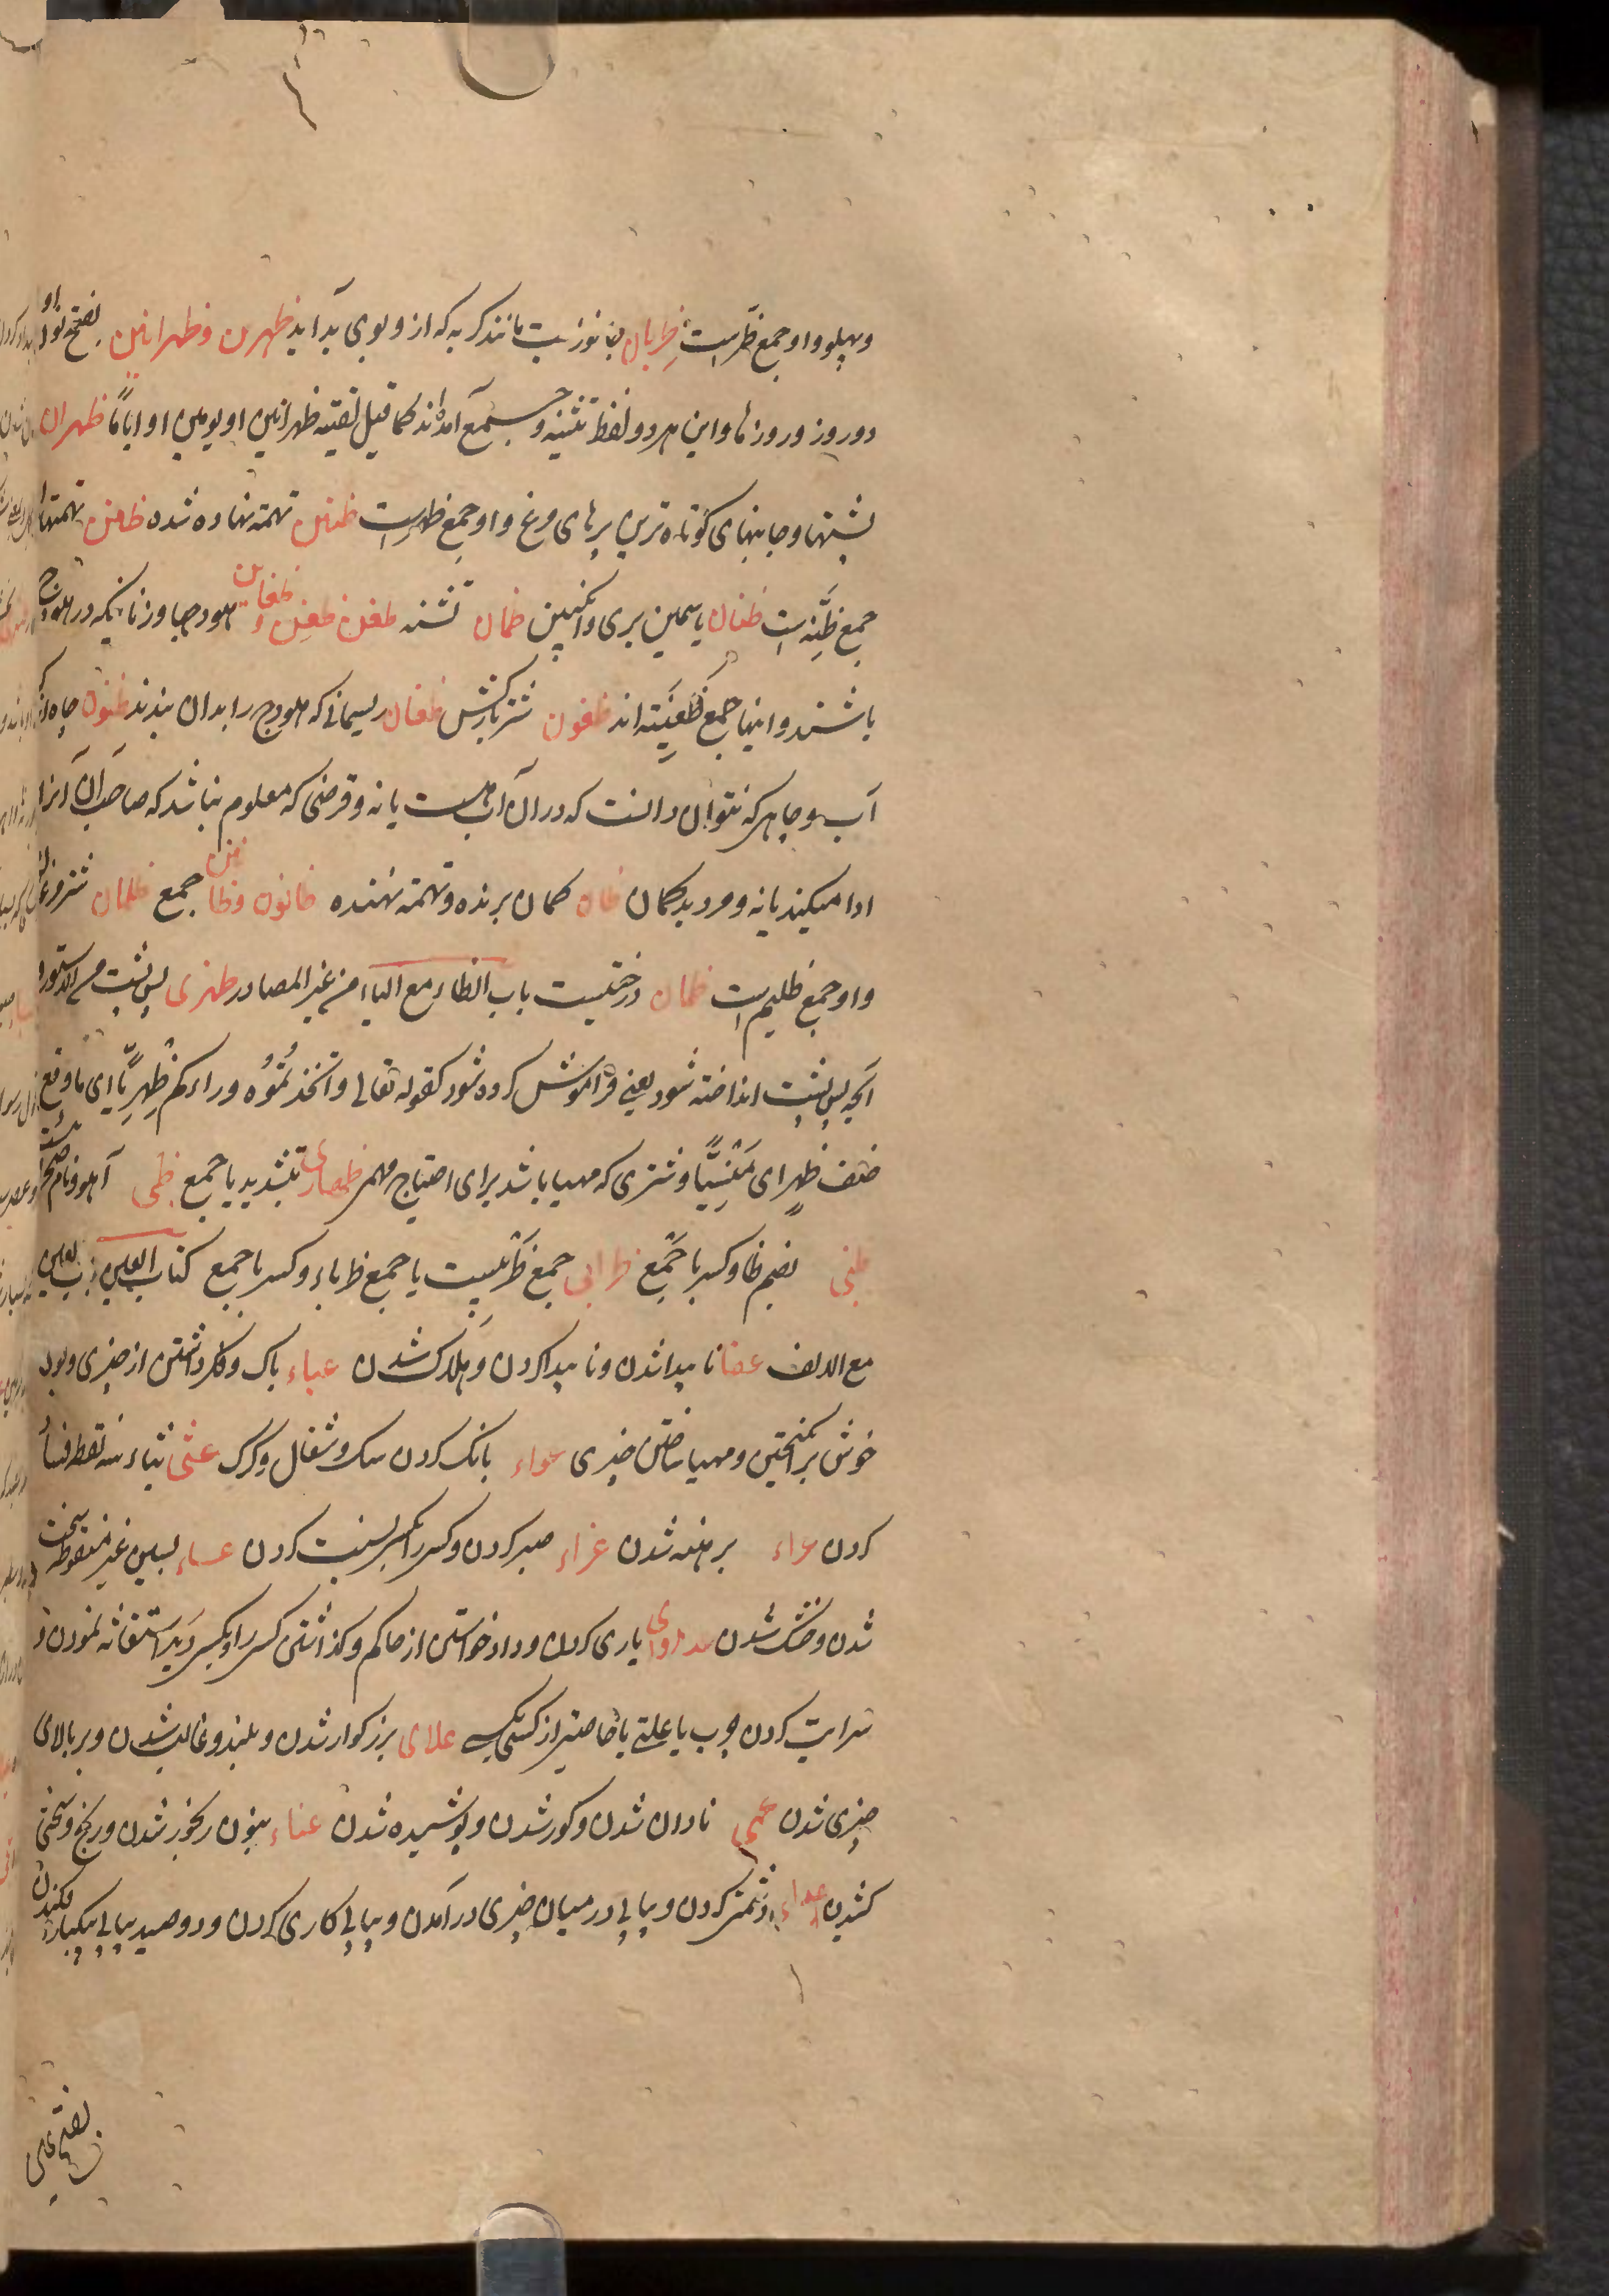 وپهلو و او جمع ظهرست ظربان جانوریست مانند گربه که ازو بوی بد آید ظهرین وظهرانین بفتح نون او
دو روز و روزها و این هر دو لفظ تثنیه و جمع آمده اند کما قیل لقیته ظهرانین او یومین او ایاماً ظهران
پشتها و جانبهای کوتاه ترین پرهای مرغ و او جمع ظهرست ظنین تهمت نهاده شده ظنن تهمتها
جمع ظنه است ظیان یاسمین بری و انگبین ظمان تشنه ظعن ظعن و ظعاین هودجها و زنانیکه در هودج
باشند و اینها جمع ظعینه اند ظعون شتر بارکش ظعان ریسمانی که هودج را بدان بندند ظنون چاه کم
آب و چاهی که نتوان دانست که در آن آب هست یا نه و قرضی که معلوم نباشد که صاحب آن آنرا
ادا میکند یا نه و مرد بدگمان ظان گمان برنده و تهمت نهنده ظانون وظانین جمع ظلمان شتر مرغان نر
و او جمع ظلیم است ظمان درختیست باب الظاء مع الیاء من غیر المصادر ظهری پس پشت
آنچه پس پشت انداخته شود یعنی فراموش کرده شود کقوله تعالی واتخذتموه وراءکم ظهریّا ای ما وقع
خلف ظهر ای مَنْسِیًّا و شتری که مهیا باشد برای احتیاج مهم ظهاری بتشدید یا جمع ظبی آهو و نام
ظبی بضم ظا و کسر با جمع ظرابی جمع ظربیست یا جمع ظرباء و کسر با جمع کتاب العین باب العین
مع الالف عفا ناپیدا شدن و ناپیدا کردن و هلاک شدن عباء باک و فکر داشتن از چیزی و بوی
خوش برانگیختن و مهیا ساختن چیزی عواء بانگ کردن سگ و شغال و گرگ عثی بثاء سه نقطه فساد
کردن عراء برهنه شدن عزاء صبر کردن و کسی را بکسی نسبت کردن عساء بسین غیر منقوطه سخت
شدن و خشک شدن عدوی یاری کردن و داد خواستن از حاکم و گذاشتن کسی را و بکسی دیگر استغاثه نمودن و
سرایت کردن جرب یا علتی یا خاصیتی از کسی بکسی علای بزرگوار شدن و بلند و غالب شدن و بر بالای
چیزی شدن عمی نادان شدن و کور شدن و پوشیده شدن عناء بنون رنجور شدن و رنج و سختی
کشیدن عداء دشمنی کردن و پیاپی در میان چیزی در آمدن و پیاپی کاری کردن و دو صید پیاپی بیکبار افکندن